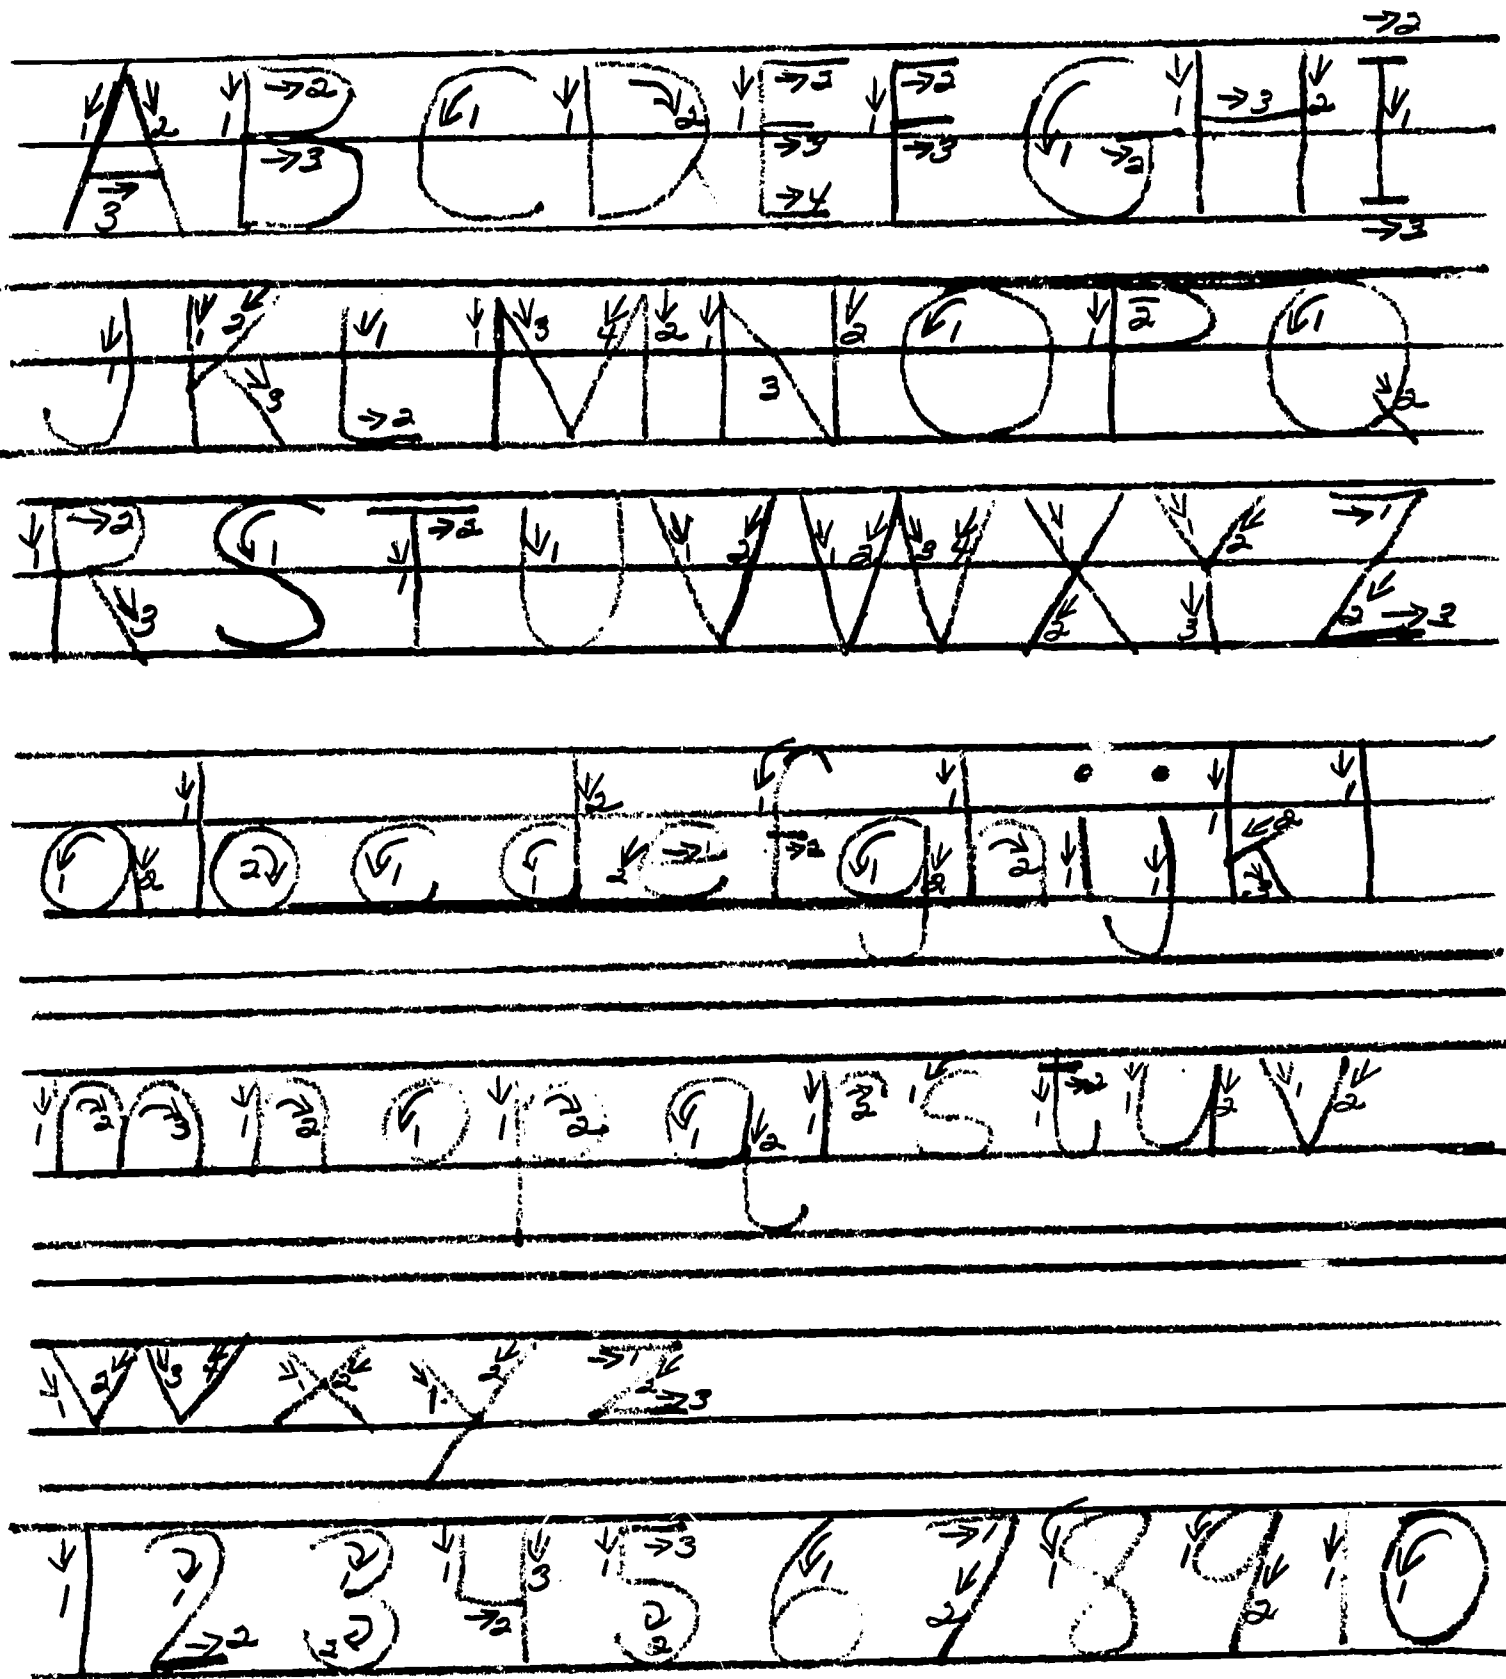 A B C D E F G H I
J K L M N O P Q
R S T U V W X Y Z
a b c d e f g h i j k l
m n o p q r s t u v
w x y z
1 2 3 4 5 6 7 8 9 10